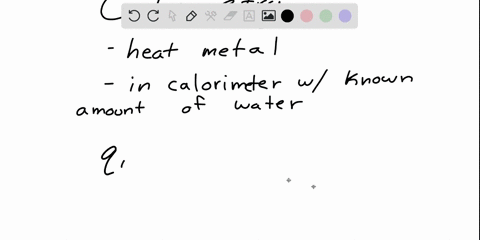 - heat metal
- in calorimeter w/ known
amount of water
q,